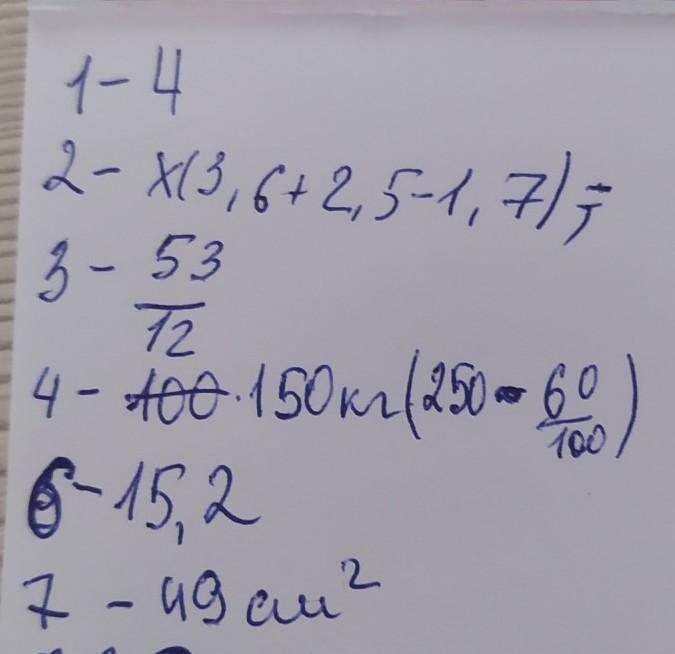 1 - 4
2 - x(3,6+2,5-1,7)
3 - 53/12
4 - 150кг(250 - 60/100)
6 - 15,2
7 - 49 см²